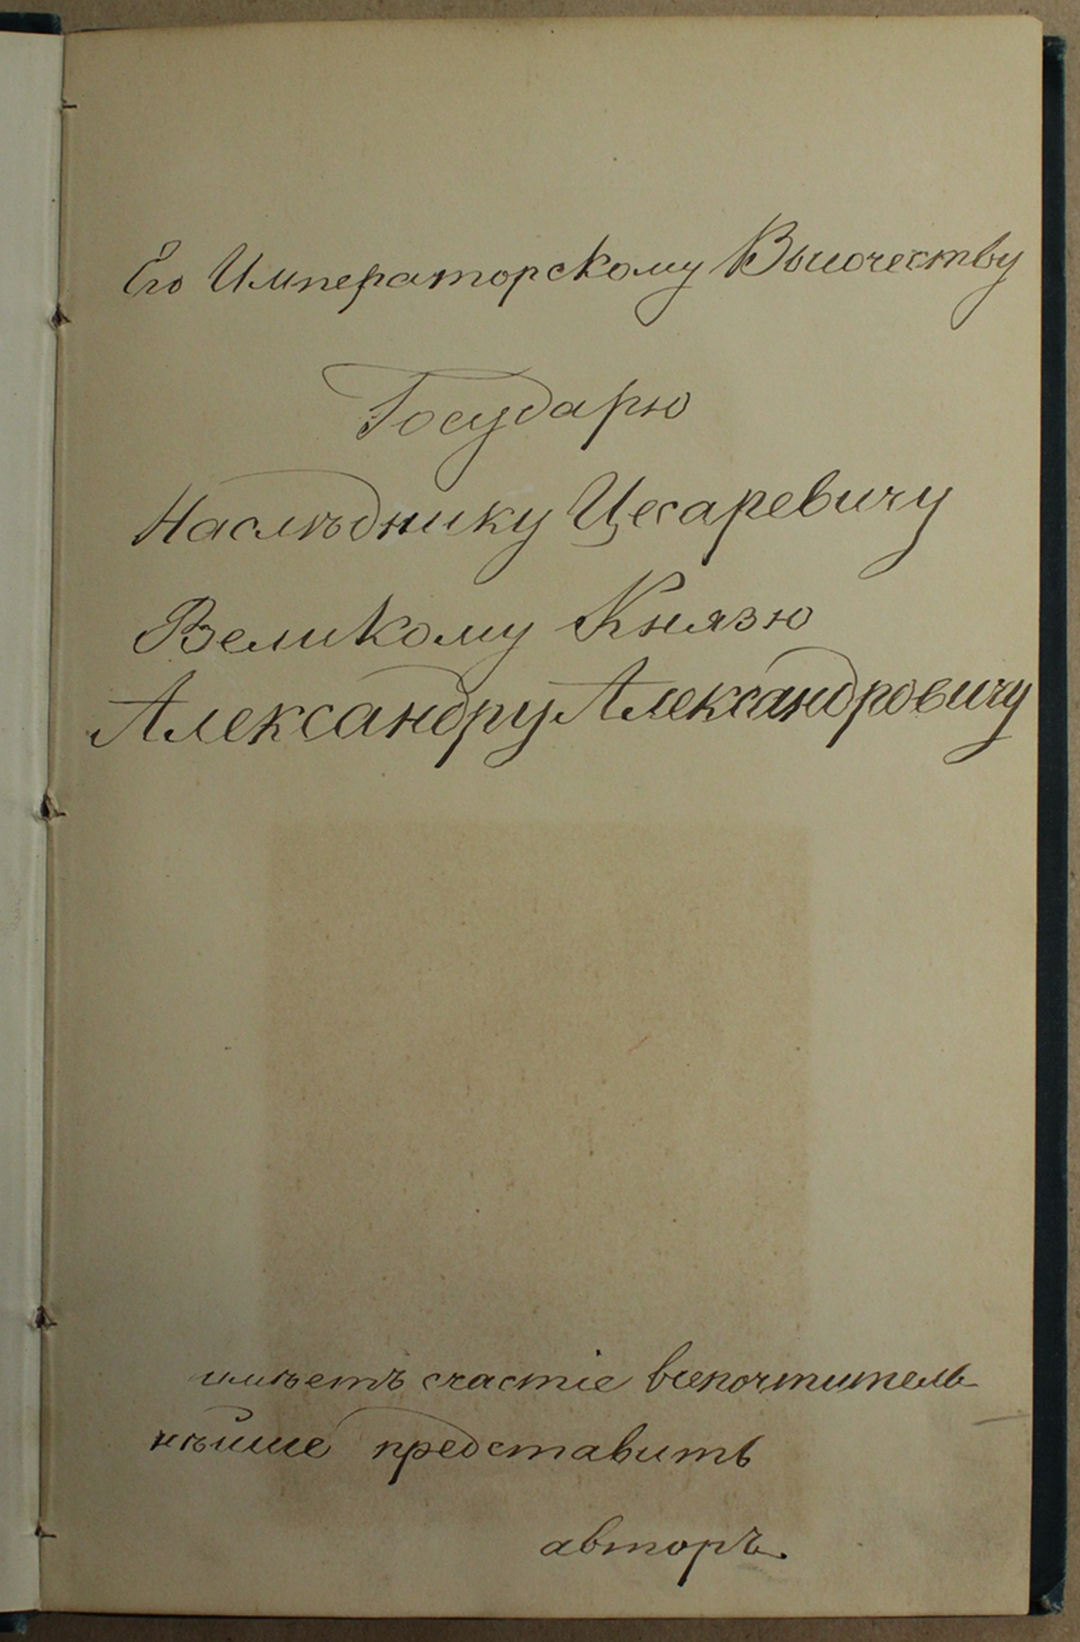 Его Императорскому Высочеству
Государю
Наслѣднику Цесаревичу
Великому Князю
Александру Александровичу
имѣетъ счастіе всепочтитель-
нѣйше представить
авторъ.